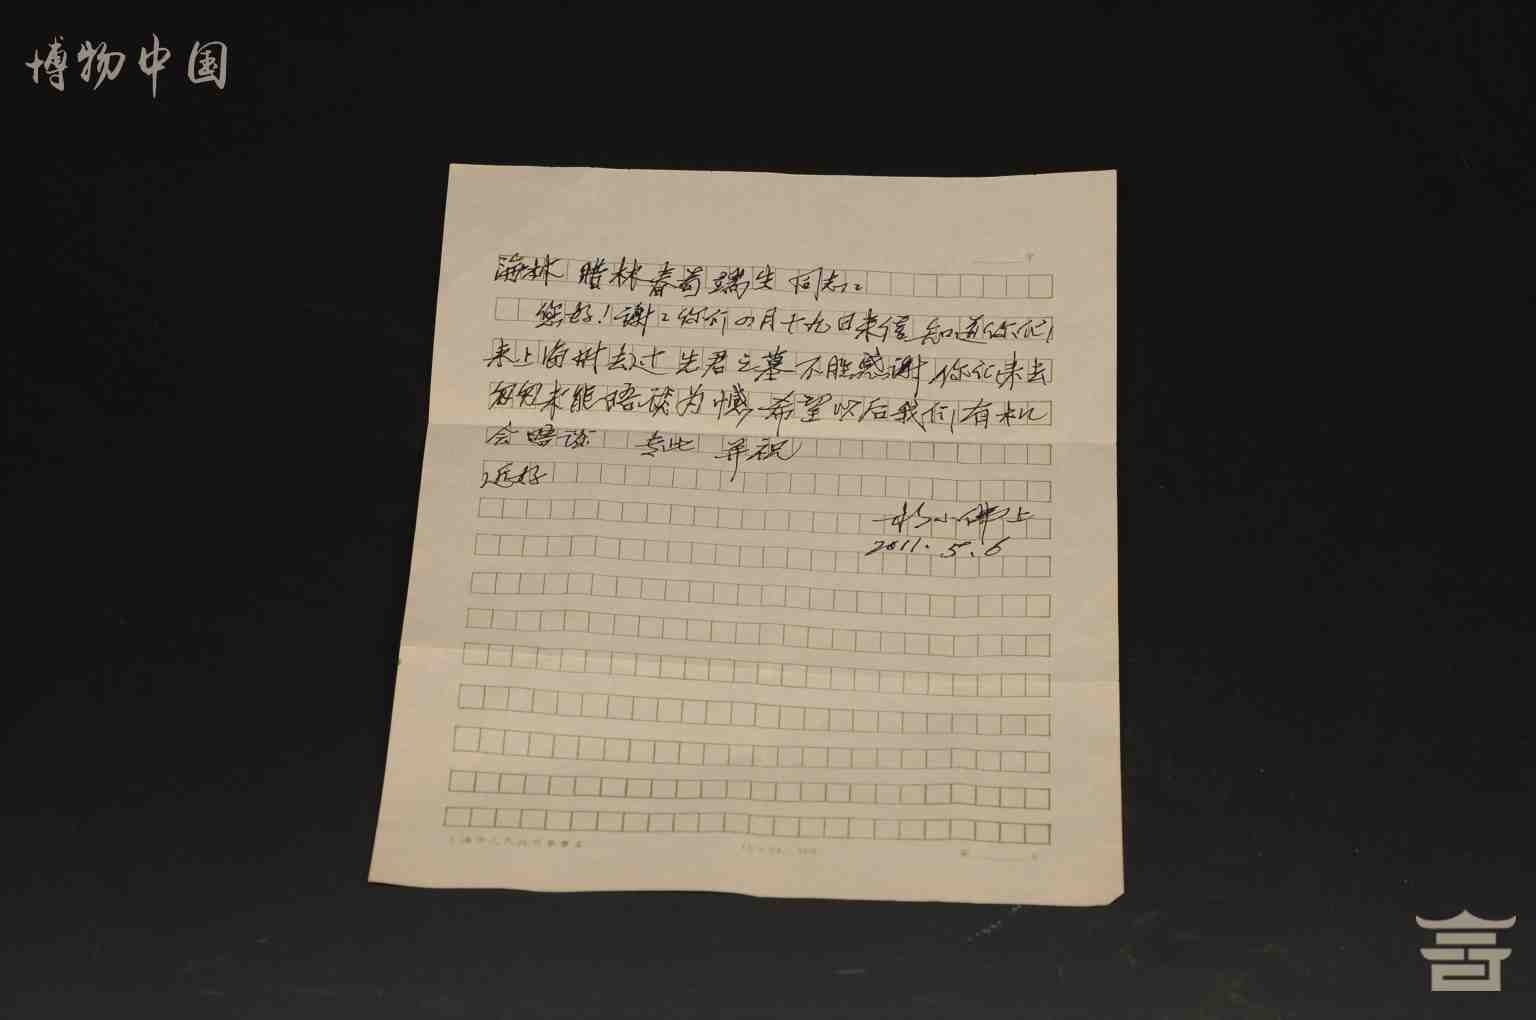 博物中国
海林 腊林 春苟 瑞生 同志:
您好!谢:你们四月十九日来信知道你们
来上海时去过先君之墓不胜感谢你们来去
匆匆未能晤谈为憾希望以后我们有机
会晤谈 专此 并祝
近好
杨小佛上
2011.5.6
上海市人民政府参事室